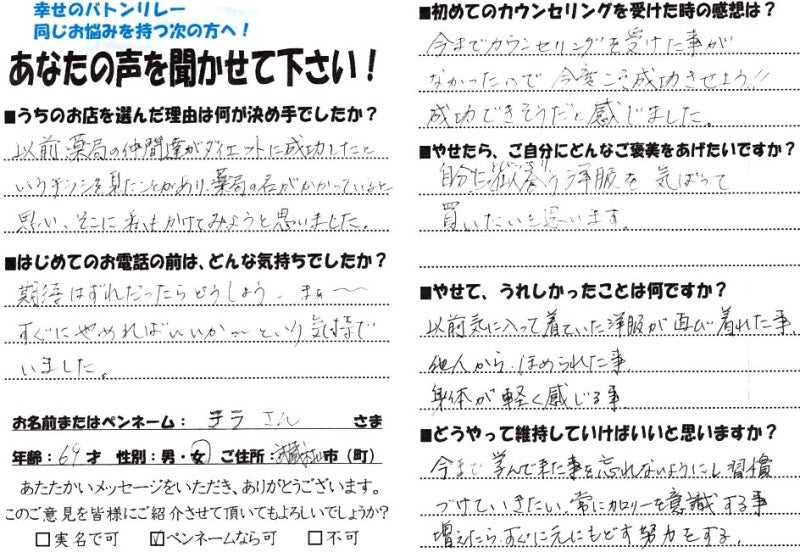 幸せのバトンリレー
同じお悩みを持つ次の方へ!
あなたの声を聞かせて下さい!
■うちのお店を選んだ理由は何が決め手でしたか?
以前薬局の仲間達がダイエットに成功したと
いうチラシを見たことがあり、薬局の名がかかっていると
思い、そこに私もかけてみようと思いました。
■はじめてのお電話の前は、どんな気持ちでしたか?
期待はずれだったらどうしよう、まぁ〜〜
すぐにやめればいいか〜という気持で
いました。
お名前またはペンネーム: テラさん さま
年齢:69才 性別:男・女 ご住所:市(町)
あたたかいメッセージをいただき、ありがとうございます。
このご意見を皆様にご紹介させて頂いてもよろしいでしょうか?
□実名で可 ☑ペンネームなら可 □不可
■初めてのカウンセリングを受けた時の感想は?
今までカウンセリングを受けた事が
なかったので今度こそ成功させよう!!
成功できそうだと感じました。
■やせたら、ご自分にどんなご褒美をあげたいですか?
自分に似合う洋服を気ばって
買いたいと思います。
■やせて、うれしかったことは何ですか?
以前気に入って着ていた洋服が再び着れた事
他人から、ほめられた事
身体が軽く感じる事
■どうやって維持していけばいいと思いますか?
今まで学んで来た事を忘れないようにし習慣
づけていきたい。常にカロリーを意識する事
増えたらすぐに元にもどす努力をする。